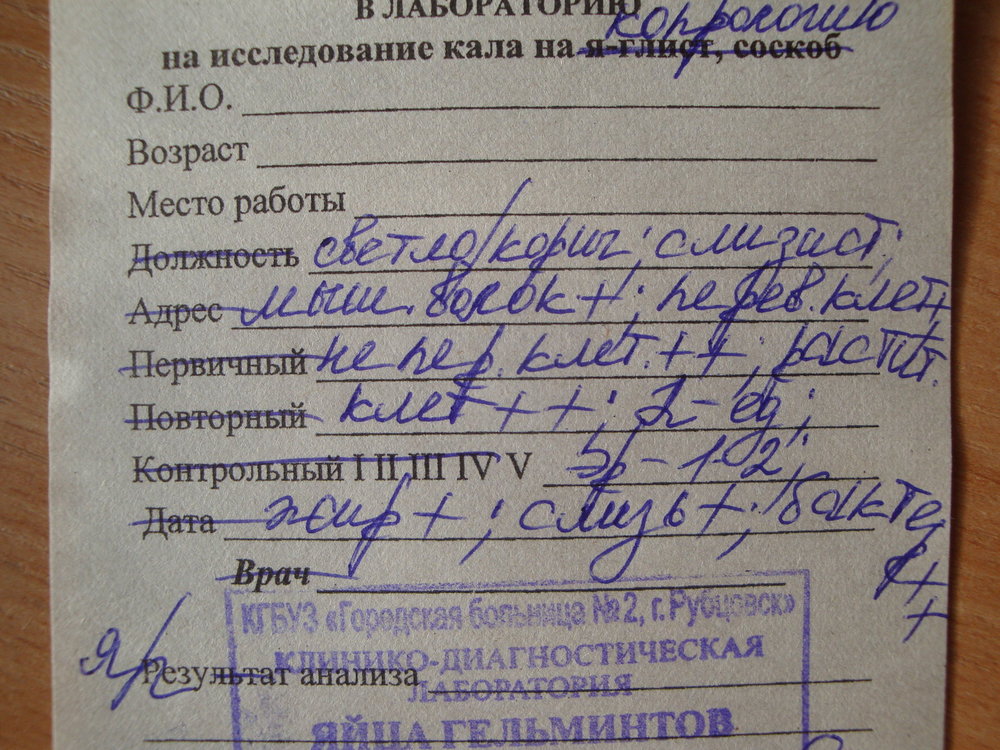 В ЛАБОРАТОРИЮ
копрологию
на исследование кала на я-глист, соскоб
Ф.И.О.
Возраст
Место работы
Должность светло/корич; слизист;
Адрес мыш. волок +; перев. клет+,
Первичный непер. клет. ++; растит.
Повторный клет ++; L-ед;
Контрольный I II III IV V Эр-1-2;
Дата жир +; слизь +; бактер
Врач ++
КГБУЗ «Городская больница №2, г. Рубцовск»
КЛИНИКО-ДИАГНОСТИЧЕСКАЯ
Я/г Результат анализа
ЛАБОРАТОРИЯ
ЯЙЦА ГЕЛЬМИНТОВ